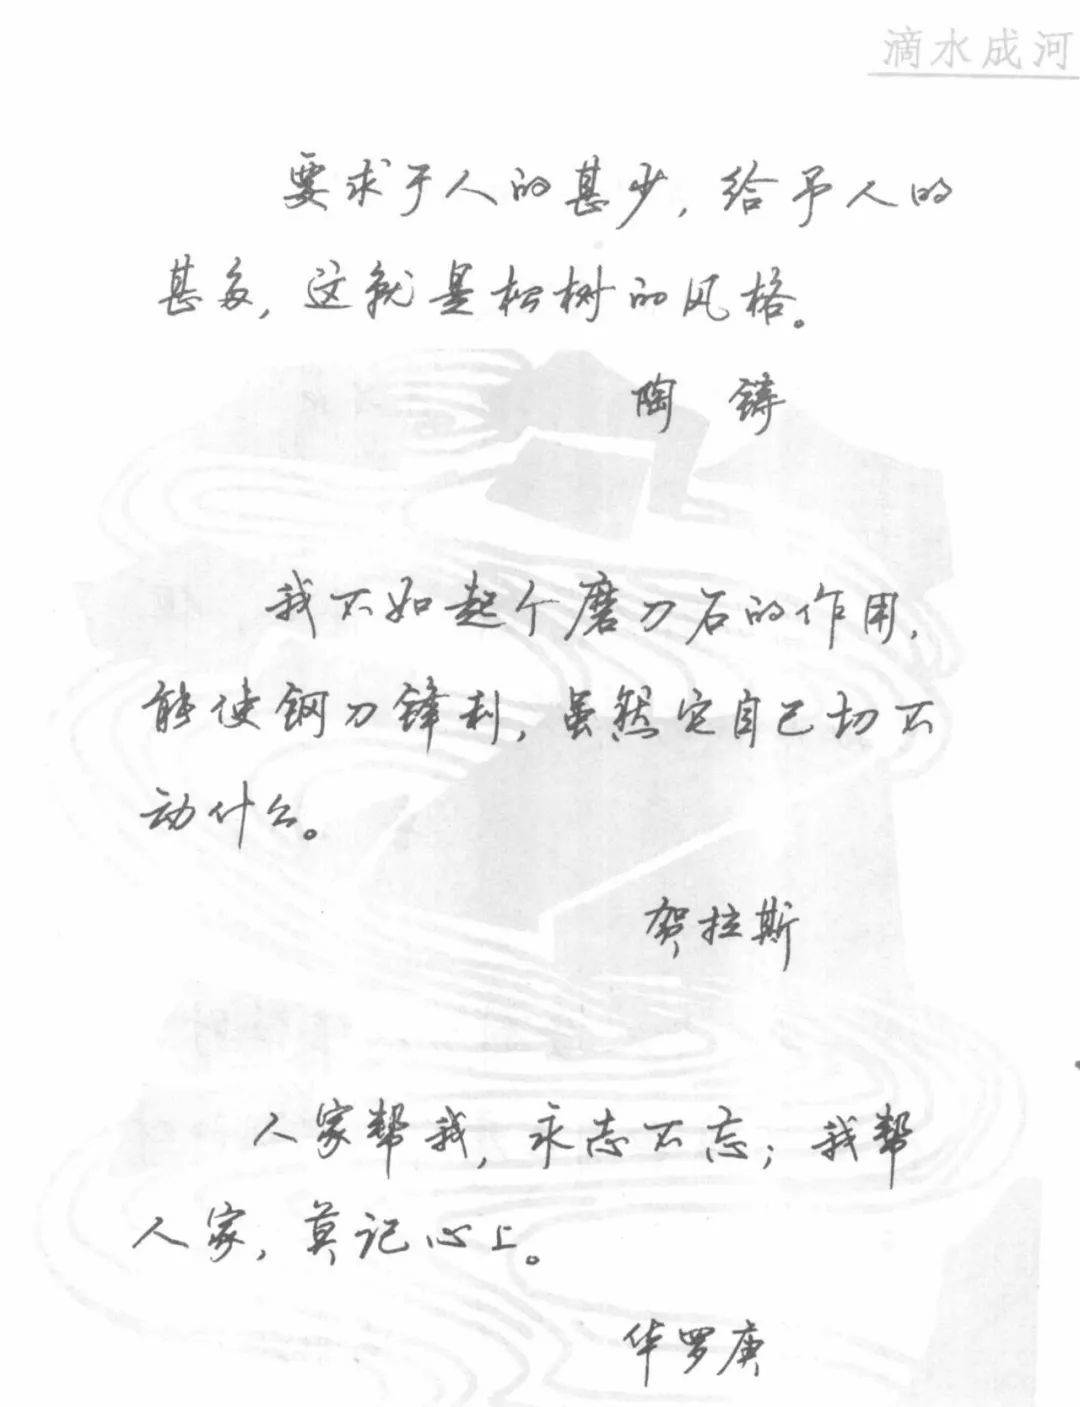 滴水成河
要求于人的甚少，给予人的
甚多，这就是松树的风格。
陶 铸
我不如起个磨刀石的作用，
能使钢刀锋利，虽然它自己切不
动什么。
贺拉斯
人家帮我，永志不忘；我帮
人家，莫记心上。
华罗庚